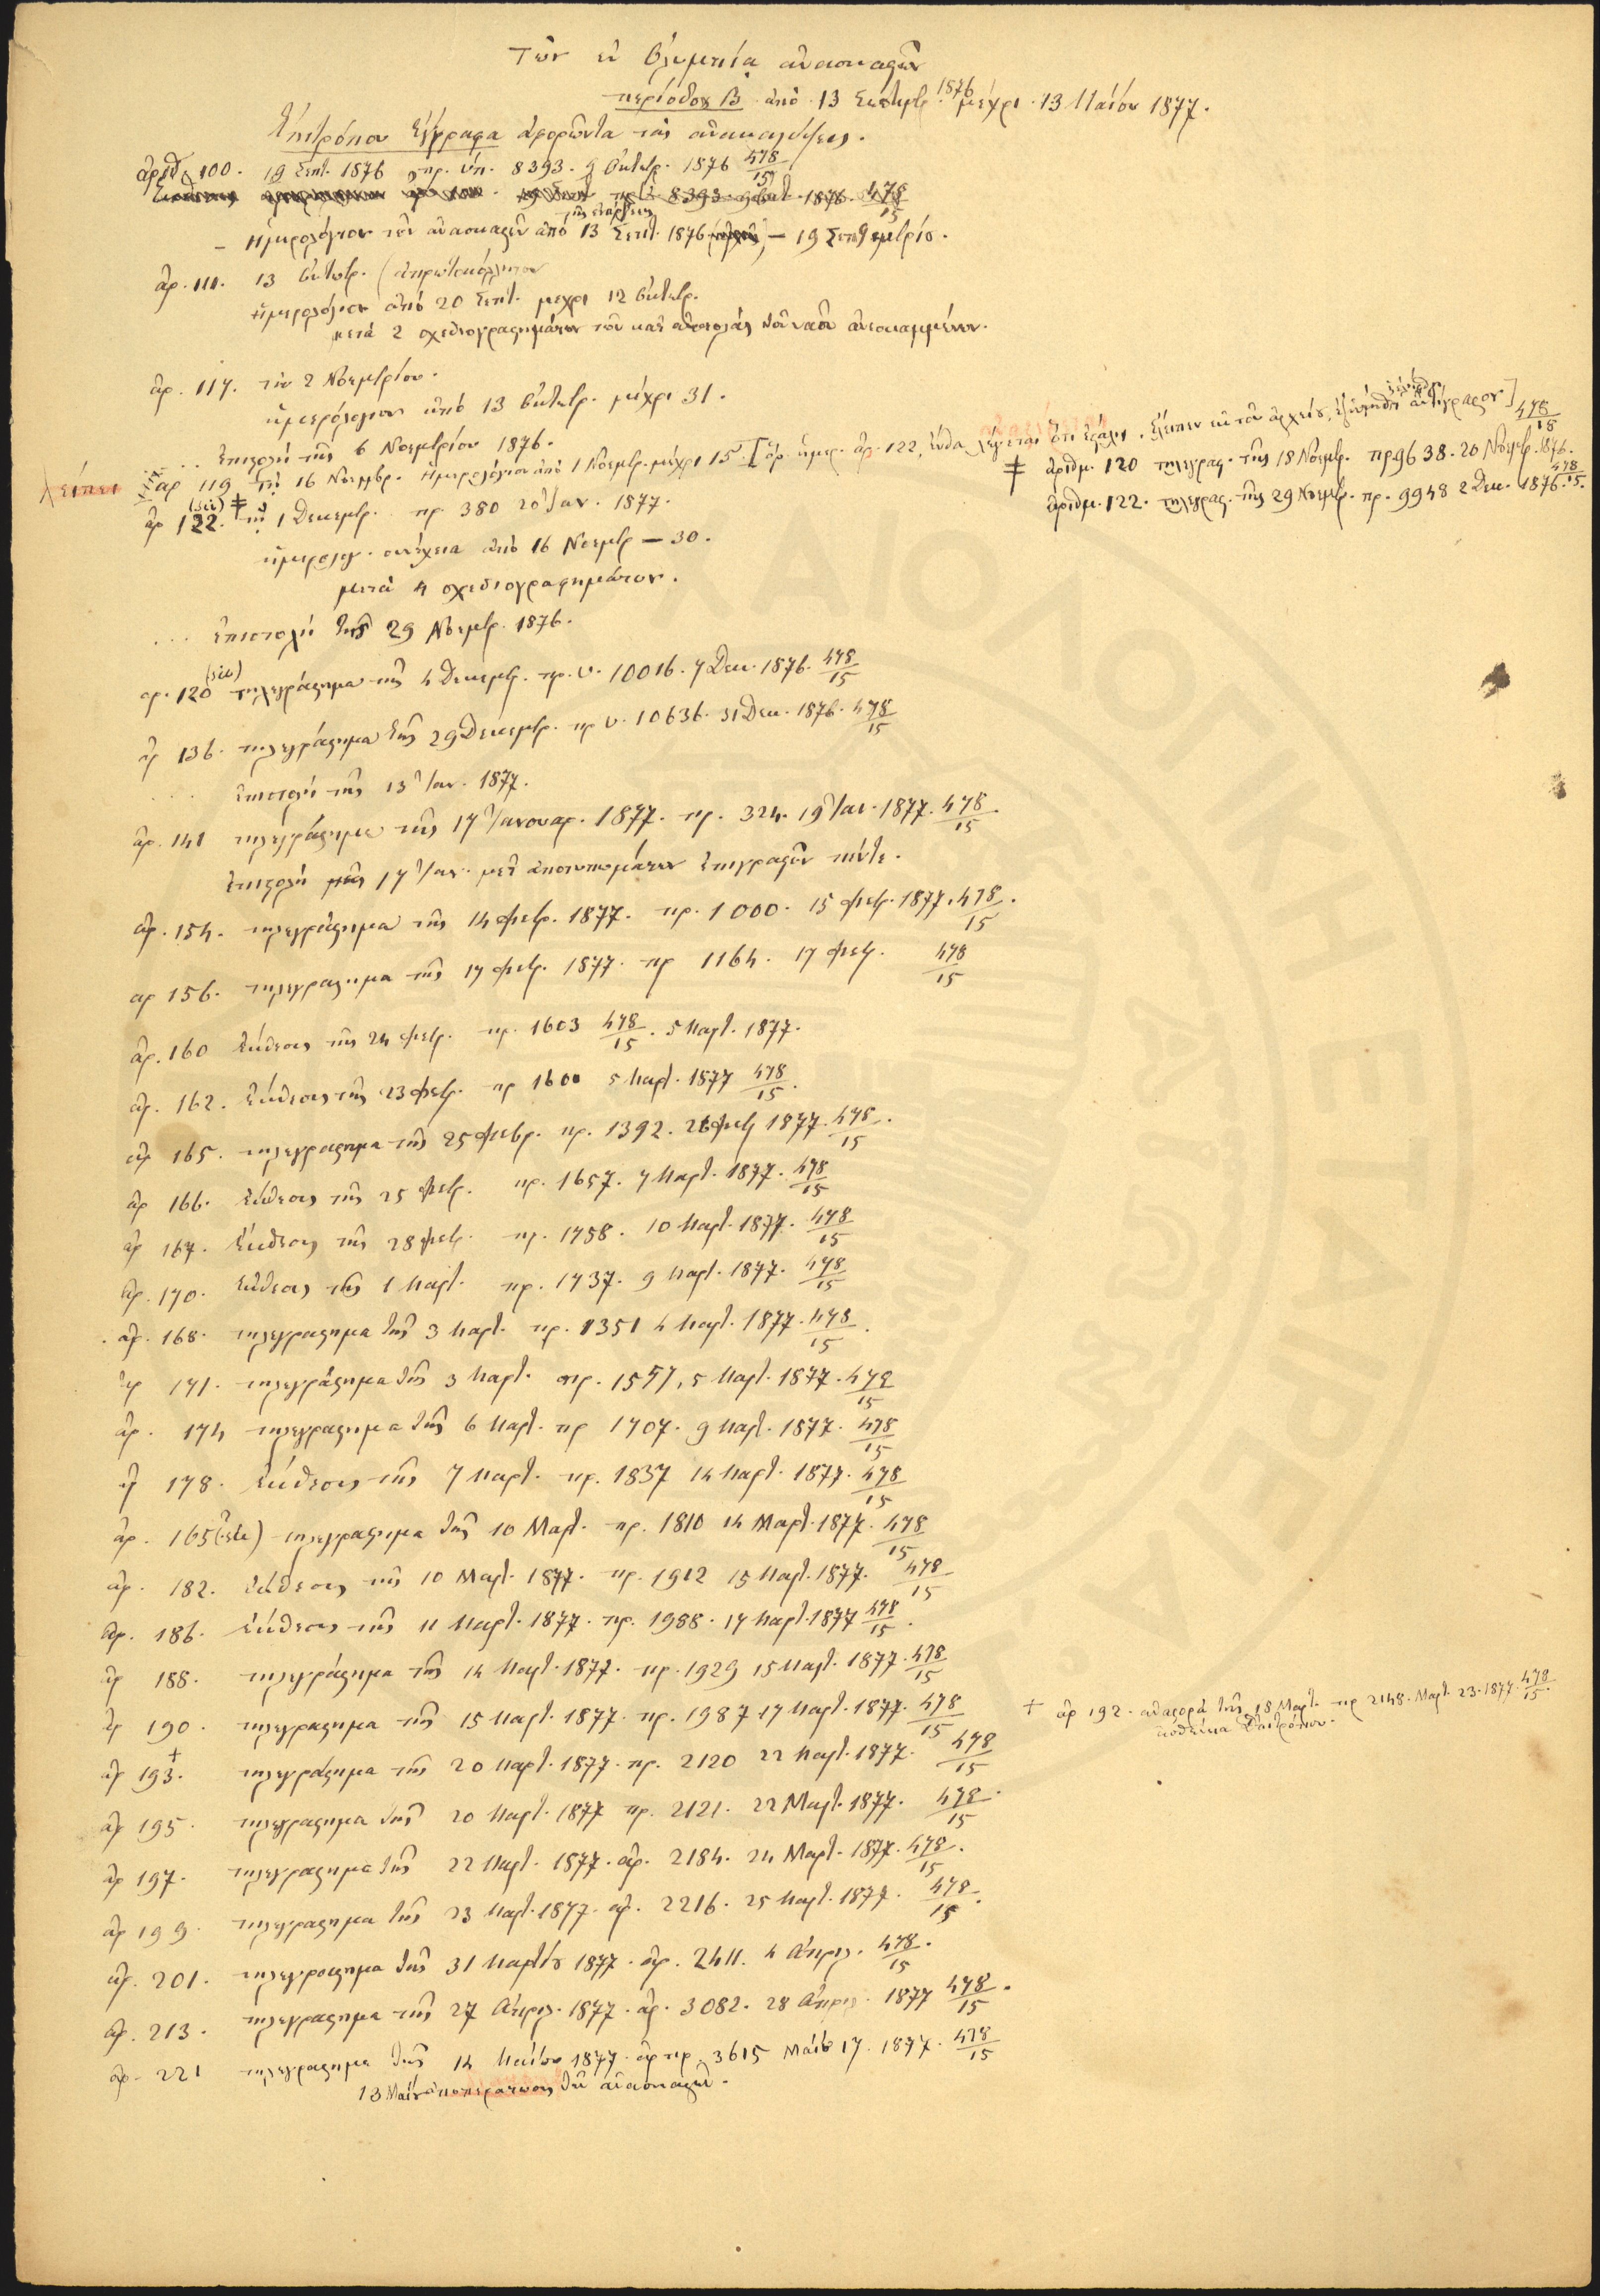 Τῶν ἐν Ὀλυμπίᾳ ἀνασκαφῶν
περίοδος Β΄ ἀπὸ 13 Σεπτμβρ. 1876 μέχρι 13 Μαΐου 1877.
Ἐπιτρόπου ἔγγραφα ἀφορῶντα τὰς ἀνακαλύψεις.
ἀριθ. 100. 19 Σεπτ. 1876 πρ. ὑπ. 8393. 9 Ὀκτωβρ. 1876 478/15
8393. 9 Ὀκτ. 1876. 478/15
– Ἡμερολόγιον τῶν ἀνασκαφῶν ἀπὸ τῆς ἐνάρξεως 13 Σεπτ. 1876 – 19 Σεπτεμβρίου.
ἀρ. 111. 13 Ὀκτωβρ. (ἀπρωτοκόλλητον
ἡμερολόγιον ἀπὸ 20 Σεπτ. μεχρι 12 Ὀκτωβρ.
μετὰ 2 σχεδιογραφημάτων τῶν κατ' ἀνατολὰς τοῦ ναοῦ ἀνεσκαμμένων.
ἀρ. 117. τὴν 2 Νοεμβρίου.
ἡμερολόγιον ἀπὸ 13 Ὀκτωβρ. μέχρι 31.
... ἐπιστολὴ τῆς 6 Νοεμβρίου 1876.
λείπει ἀρ 119 τῇ 16 Νοεμβρ. ἡμερολόγιον ἀπὸ 1 Νοεμβρ. μέχρι 15 [ὅρ. ἡμερ. ἀρ. 122, ἔνθα λέγεται ὅτι ἔλειπεν ἐκ τοῦ ἀρχείου, ἐζητήθη ἀντίγραφον]
ἀρ 122. (sic) ‡ τῇ 1 Δεκεμβρ. πρ. 380 20 Ἰαν. 1877.
‡ ἀριθμ. 120 τηλεγραφ. τῆς 18 Νοεμβρ. πρ. 9638. 20 Νοεμβρ. 1876. 478/15
ἀριθμ. 122. τηλεγραφ. τῆς 29 Νοεμβρ. πρ. 9948 2 Δεκ. 1876. 478/15.
ἡμερολογ. συνέχεια ἀπὸ 16 Νοεμβρ – 30.
μετὰ 4 σχεδιογραφημάτων.
... ἐπιστολὴ τῆς 29 Νοεμβρ. 1876.
αρ. 120 (sic) τηλεγράφημα τῆς 4 Δεκεμβρ. πρ. υ. 10016. 7 Δεκ. 1876. 478/15
ἀρ 136. τηλεγράφημα τῆς 29 Δεκεμβρ. πρ υ. 10636. 31 Δεκ. 1876. 478/15
... ἐπιστολὴ τῆς 13 Ἰαν. 1877.
ἀρ. 141 τηλεγράφημα τῆς 17 Ἰανουαρ. 1877. πρ. 324. 19 Ἰαν. 1877. 478/15
ἐπιστολὴ τῆς 17 Ἰαν. μετ' ἀποτυπωμάτων ἐπιγραφῶν πέντε.
ἀρ. 154. τηλεγράφημα τῆς 14 Φεβρ. 1877. πρ. 1000. 15 Φεβρ. 1877. 478/15.
αρ 156. τηλεγραφημα τῆς 17 Φεβρ. 1877. πρ 1164. 17 Φεβρ. 478/15
ἀρ. 160 ἔκθεσις τῆς 24 Φεβρ. πρ. 1603 478/15. 5 Μαρτ. 1877.
ἀρ. 162. ἔκθεσις τῆς 23 Φεβρ. πρ 1600 5 Μαρτ. 1877 478/15.
ἀρ 165. τηλεγραφημα τῆς 25 Φεβρ. πρ. 1392. 26 Φεβρ 1877. 478/15.
ἀρ 166. ἔκθεσις τῆς 25 Φεβρ. πρ. 1657. 7 Μαρτ. 1877. 478/15
ἀρ 167. ἔκθεσις τῆς 28 Φεβρ. πρ. 1758. 10 Μαρτ. 1877. 478/15
ἀρ. 170. ἔκθεσις τῆς 1 Μαρτ. πρ. 1737. 9 Μαρτ. 1877. 478/15
ἀρ. 168. τηλεγραφημα τῆς 3 Μαρτ. πρ. 1351 4 Μαρτ. 1877. 478/15.
ἀρ 171. τηλεγράφημα τῆς 3 Μαρτ. πρ. 1557, 5 Μαρτ. 1877. 478/15
ἀρ. 174 τηλεγραφημα τῆς 6 Μαρτ. πρ 1707. 9 Μαρτ. 1877. 478/15
ἀρ 178. ἔκθεσις τῆς 7 Μαρτ. πρ. 1837 14 Μαρτ. 1877. 478/15
ἀρ. 165 (sic) τηλεγραφημα τῆς 10 Μαρτ. πρ. 1810 14 Μαρτ. 1877. 478/15
ἀρ. 182. ἔκθεσις τῆς 10 Μαρτ. 1877. πρ. 1912 15 Μαρτ. 1877. 478/15
ἀρ. 186. ἔκθεσις τῆς 11 Μαρτ. 1877. πρ. 1988. 17 Μαρτ. 1877 478/15.
ἀρ 188. τηλεγράφημα τῆς 14 Μαρτ. 1877. πρ. 1929 15 Μαρτ. 1877. 478/15
ἀρ 190. τηλεγραφημα τῆς 15 Μαρτ. 1877. πρ. 1987 17 Μαρτ. 1877. 478/15
† ἀρ 192. ἀναφορὰ τῆς 18 Μαρτ. πρ 2148. Μαρτ. 23. 1877. 478/15.
ἀσθένεια Ἐπιτρόπου.
ἀρ 193.† τηλεγράφημα τῆς 20 Μαρτ. 1877. πρ. 2120 22 Μαρτ. 1877. 478/15
ἀρ 195. τηλεγραφημα τῆς 20 Μαρτ. 1877 πρ. 2121. 22 Μαρτ. 1877. 478/15.
ἀρ 197. τηλεγραφημα τῆς 22 Μαρτ. 1877. ἀρ. 2184. 24 Μαρτ. 1877. 478/15.
ἀρ 199. τηλεγραφημα τῆς 23 Μαρτ. 1877. ἀρ. 2216. 25 Μαρτ. 1877. 478/15.
ἀρ. 201. τηλεγραφημα τῆς 31 Μαρτίου 1877. ἀρ. 2411. 4 Ἀπριλ. 478/15.
ἀρ. 213. τηλεγραφημα τῆς 27 Ἀπριλ. 1877. ἀρ. 3082. 28 Ἀπριλ. 1877 478/15.
ἀρ. 221 τηλεγραφημα τῆς 14 Μαΐου 1877. ἀρ πρ. 3615 Μαΐου 17. 1877. 478/15
13 Μαΐου ἀποπεράτωσις τῶν ἀνασκαφῶν.